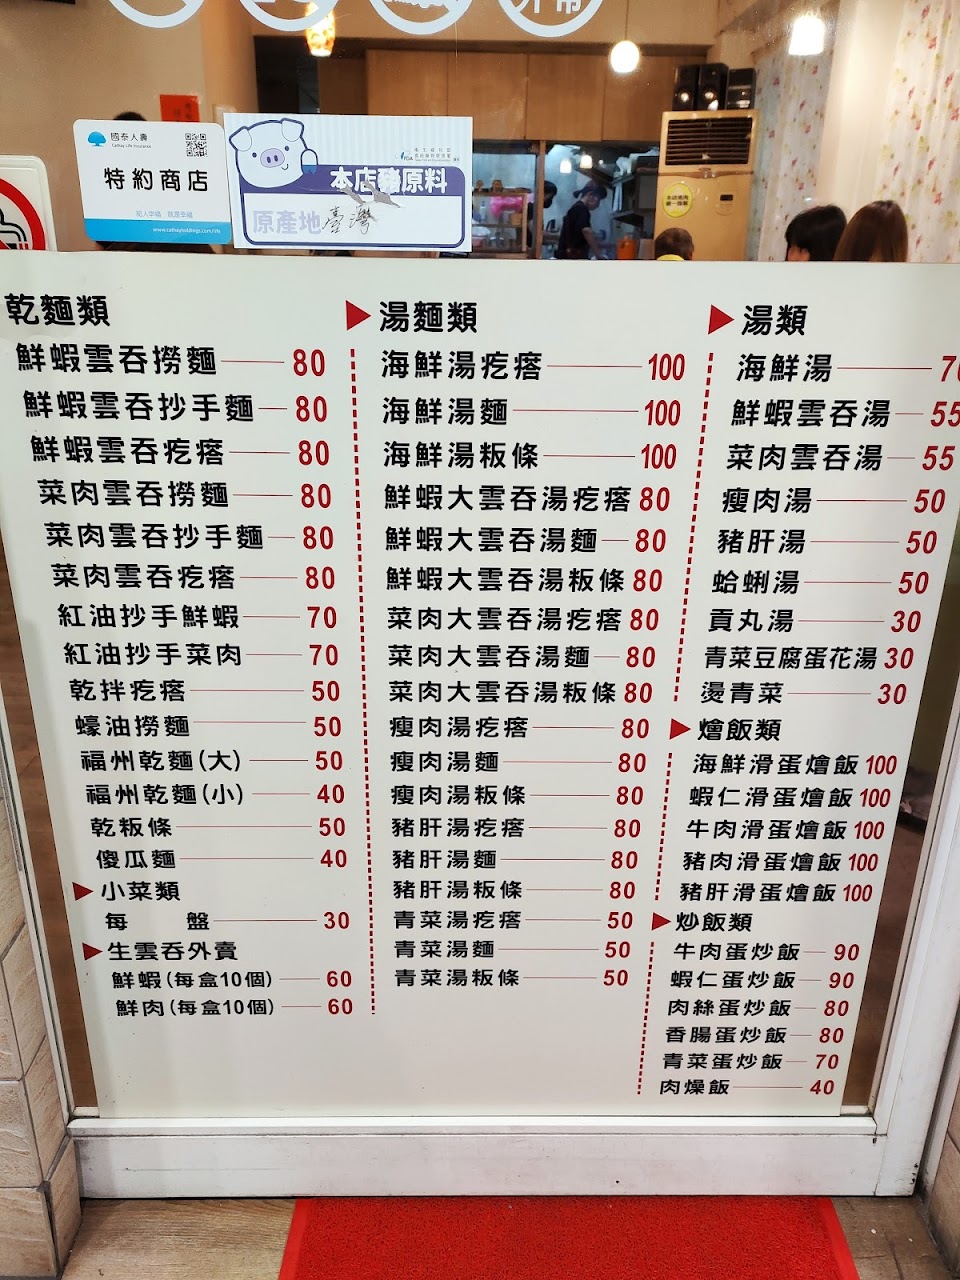 國泰人壽
Cathay Life Insurance
特約商店
www.cathayholdings.com/life
本店豬原料
原產地臺灣
乾麵類
鮮蝦雲吞撈麵 80
鮮蝦雲吞抄手麵 80
鮮蝦雲吞疙瘩 80
菜肉雲吞撈麵 80
菜肉雲吞抄手麵 80
菜肉雲吞疙瘩 80
紅油抄手鮮蝦 70
紅油抄手菜肉 70
乾拌疙瘩 50
蠔油撈麵 50
福州乾麵(大) 50
福州乾麵(小) 40
乾粄條 50
傻瓜麵 40
小菜類
每 盤 30
生雲吞外賣
鮮蝦(每盒10個) 60
鮮肉(每盒10個) 60
湯麵類
海鮮湯疙瘩 100
海鮮湯麵 100
海鮮湯粄條 100
鮮蝦大雲吞湯疙瘩 80
鮮蝦大雲吞湯麵 80
鮮蝦大雲吞湯粄條 80
菜肉大雲吞湯疙瘩 80
菜肉大雲吞湯麵 80
菜肉大雲吞湯粄條 80
瘦肉湯疙瘩 80
瘦肉湯麵 80
瘦肉湯粄條 80
豬肝湯疙瘩 80
豬肝湯麵 80
豬肝湯粄條 80
青菜湯疙瘩 50
青菜湯麵 50
青菜湯粄條 50
湯類
海鮮湯 70
鮮蝦雲吞湯 55
菜肉雲吞湯 55
瘦肉湯 50
豬肝湯 50
蛤蜊湯 50
貢丸湯 30
青菜豆腐蛋花湯 30
燙青菜 30
燴飯類
海鮮滑蛋燴飯 100
蝦仁滑蛋燴飯 100
牛肉滑蛋燴飯 100
豬肉滑蛋燴飯 100
豬肝滑蛋燴飯 100
炒飯類
牛肉蛋炒飯 90
蝦仁蛋炒飯 90
肉絲蛋炒飯 80
香腸蛋炒飯 80
青菜蛋炒飯 70
肉燥飯 40